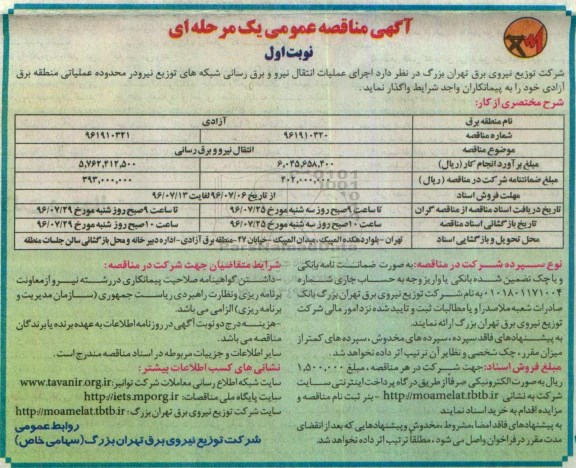 آگهی مناقصه عمومی یک مرحله ای
نوبت اول
شرکت توزیع نیروی برق تهران بزرگ در نظر دارد اجرای عملیات انتقال نیرو و برق رسانی شبکه های توزیع نیرو در محدوده عملیاتی منطقه برق
آزادی خود را به پیمانکاران واجد شرایط واگذار نماید.
شرح مختصری از کار:
نام منطقه برق آزادی
شماره مناقصه ۹۶۱۹۱۰۳۲۰ ۹۶۱۹۱۰۳۲۱
موضوع مناقصه انتقال نیرو و برق رسانی
مبلغ برآورد انجام کار (ریال) ۶,۰۴۵,۶۵۸,۴۰۰ ۵,۷۶۲,۴۱۲,۵۰۰
مبلغ ضمانتنامه شرکت در مناقصه (ریال) ۴۰۲,۰۰۰,۰۰۰ ۳۹۳,۰۰۰,۰۰۰
مهلت فروش اسناد از تاریخ ۹۶/۰۷/۰۶ لغایت ۹۶/۰۷/۱۳
تاریخ دریافت اسناد مناقصه از مناقصه گران تا ساعت ۹ صبح روز سه شنبه مورخ ۹۶/۰۷/۲۵ تا ساعت ۹ صبح روز شنبه مورخ ۹۶/۰۷/۲۹
تاریخ بازگشائی اسناد مناقصه ساعت ۱۰ صبح روز سه شنبه مورخ ۹۶/۰۷/۲۵ ساعت ۱۰ صبح روز شنبه مورخ ۹۶/۰۷/۲۹
محل تحویل و بازگشایی اسناد تهران -بلوار دهکده المپیک، میدان المپیک - خیابان ۲۷ -منطقه برق آزادی - اداره دبیرخانه و محل بازگشائی سالن جلسات منطقه
نوع سپرده شرکت در مناقصه: به صورت ضمانت نامه بانکی
و یا چک تضمین شده بانکی یا واریز وجه به حساب جاری شماره
۰۱۰۱۸۰۱۱۷۱۰۰۴ به نام شرکت توزیع نیروی برق تهران بزرگ بانک
صادرات شعبه ملاصدرا و یا مطالبات ثبت و تایید شده نزد امور مالی شرکت
توزیع نیروی برق تهران بزرگ ارائه نمایند.
به پیشنهادهای فاقد سپرده، سپرده های مخدوش، سپرده های کمتر از
میزان مقرر، چک شخصی و نظایر آن ترتیب اثر داده نخواهد شد.
مبلغ فروش اسناد: جهت شرکت در هر مناقصه، مبلغ ۱,۵۰۰,۰۰۰
ریال به صورت الکترونیکی صرفا از طریق درگاه پرداخت اینترنتی سایت
شرکت به نشانی http://moamelat.tbtb.ir - بنر ثبت نام مناقصه و
مزایده اقدام به خرید اسناد نمایند
به پیشنهادهای فاقد امضا، مشروط، مخدوش و پیشنهادهایی که بعد از انقضای
مدت مقرر در فراخوان واصل می شود، مطلقا ترتیب اثر داده نخواهد شد.
شرایط متقاضیان جهت شرکت در مناقصه:
-داشتن گواهینامه صلاحیت پیمانکاری در رشته نیرو از معاونت
برنامه ریزی و نظارت راهبردی ریاست جمهوری (سازمان مدیریت و
برنامه ریزی) الزامی می باشد.
-هزینه درج دو نوبت آگهی در روزنامه اطلاعات به عهده برنده یا برندگان
مناقصه می باشد.
سایر اطلاعات و جزییات مربوطه در اسناد مناقصه مندرج است.
نشانی های کسب اطلاعات بیشتر:
سایت شبکه اطلاع رسانی معاملات شرکت توانیر: www.tavanir.org.ir
سایت پایگاه ملی مناقصات: http://iets.mporg.ir
سایت شرکت توزیع نیروی برق تهران بزرگ: http://moamelat.tbtb.ir
روابط عمومی
شرکت توزیع نیروی برق تهران بزرگ (سهامی خاص)